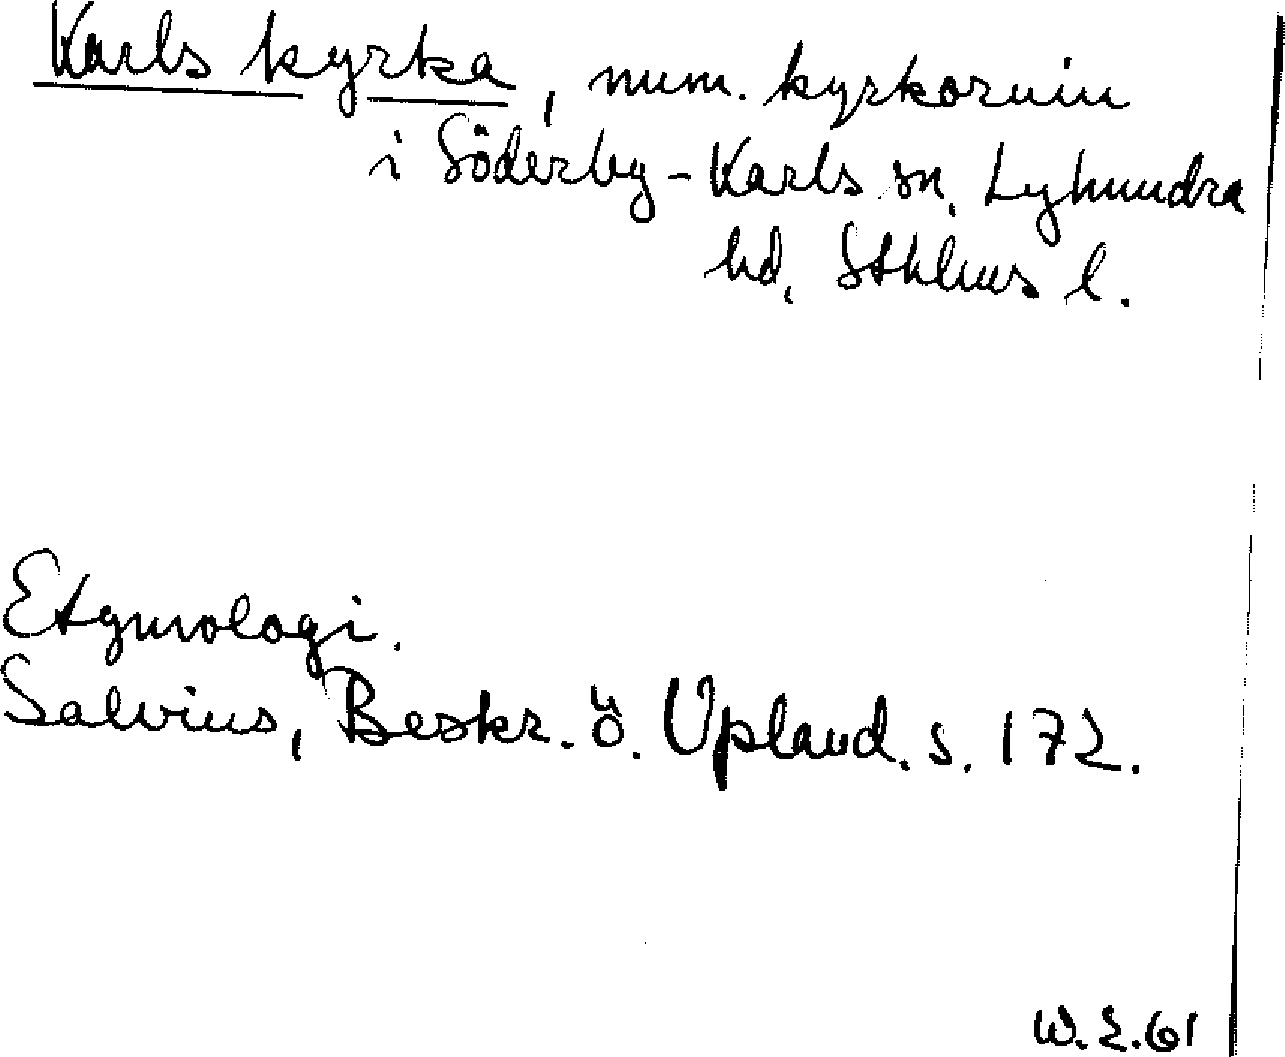 Karls kyrka, num. kyrkoruin
i Söderby-Karls sn, Lyhundra
hd, Sthlms l.
Etymologi.
Salvius, Beskr. ö. Upland. s. 172.
W.L.61